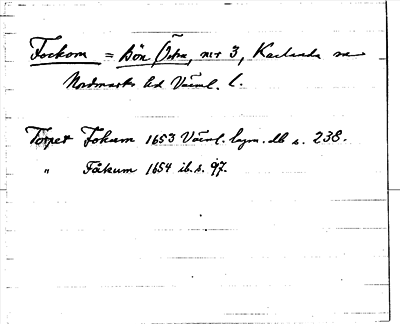 Fockom = Bön Östra, nr 3, Karlanda sn
Nordmarks hd Värml. l.
Torpet Fokum 1653 Värml. lagm. db s. 238.
" Fåkum 1654 ib. s. 97.